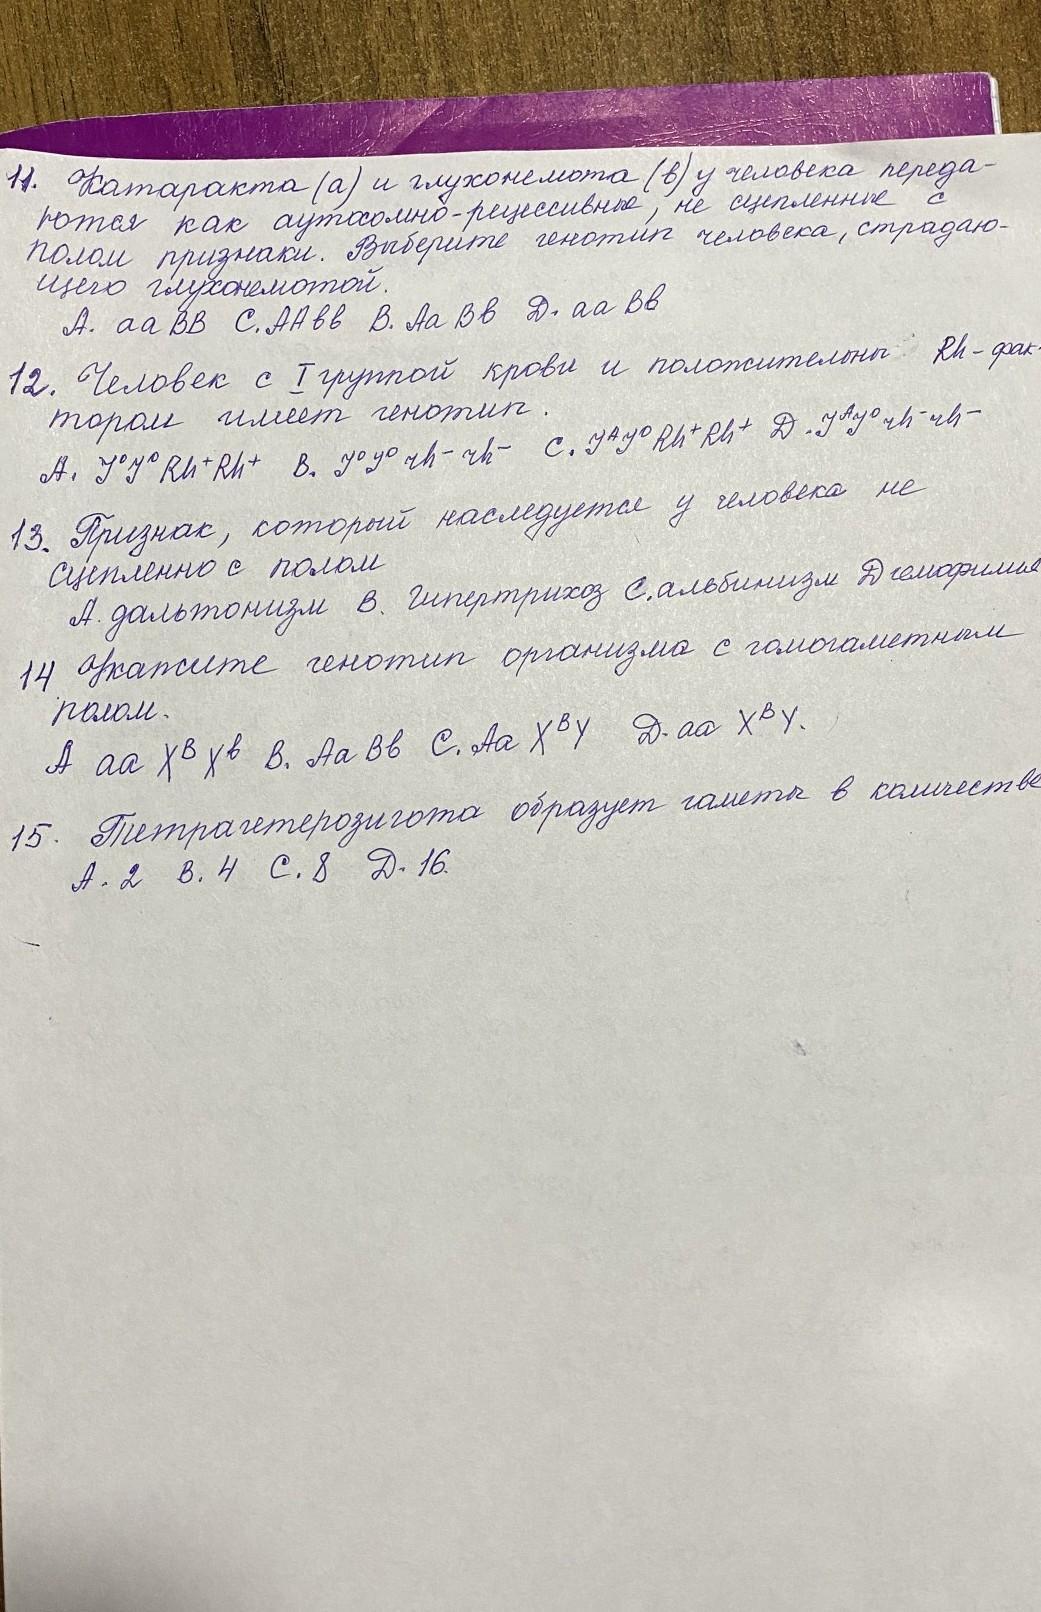 11. Катаракта (а) и глухонемота (в) у человека переда-
ются как аутосомно-рецессивные, не сцепленные с
полом признаки. Выберите генотип человека, страдаю-
щего глухонемотой.
А. аа ВВ С. АА вв В. Аа Вв Д. аа Вв
12. Человек с I группой крови и положительны Rh-фак-
тором имеет генотип.
А. J⁰J⁰ Rh⁺Rh⁺ В. J⁰J⁰ rh⁻ rh⁻ С. JᴬJ⁰ Rh⁺Rh⁺ Д. JᴬJ⁰ rh⁻ rh⁻
13. Признак, который наследуется у человека не
сцепленно с полом
А. дальтонизм В. Гипертрихоз С. альбинизм Д гемофилия
14 Укажите генотип организма с гомогаметным
полом.
А аа XᴮXᵇ В. Аа Вв С. Аа XᴮY Д. аа XᴮY.
15. Тетрагетерозигота образует гаметы в количестве
А. 2 В. 4 С. 8 Д. 16.